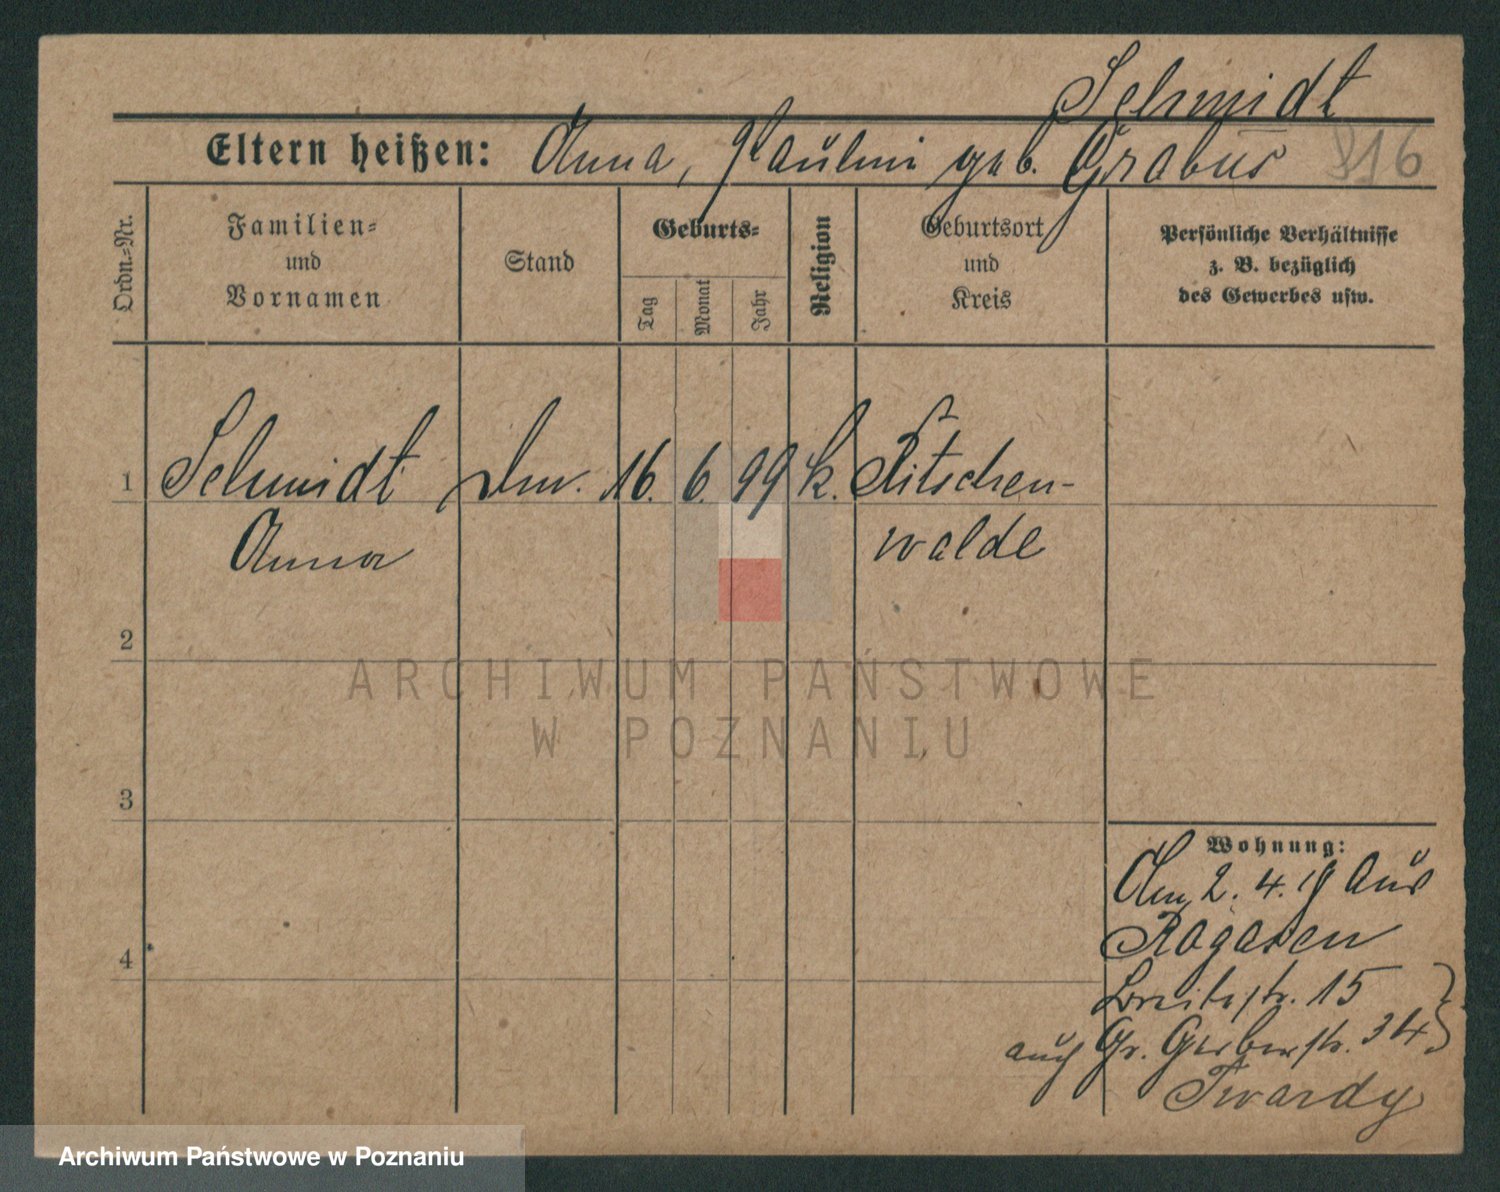 Schmidt
Eltern heißen: Anna, Paulini geb. Grabus 816
Ordn.=Nr.
Familien=
und
Vornamen
Stand
Geburts=
Tag
Monat
Jahr
Religion
Geburtsort
und
Kreis
Persönliche Verhältnisse
z. B. bezüglich
des Gewerbes usw.
1 Schmidt 16. 6. 99 k. Ritschen-
Anna walde
2
ARCHIWUM PAŃSTWOWE
W POZNANIU
3
Wohnung:
2. 4. 19 aus
Rogasen
4
Breitestr. 15
auch Gr. Gerberstr. 34
Twardy
Archiwum Państwowe w Poznaniu